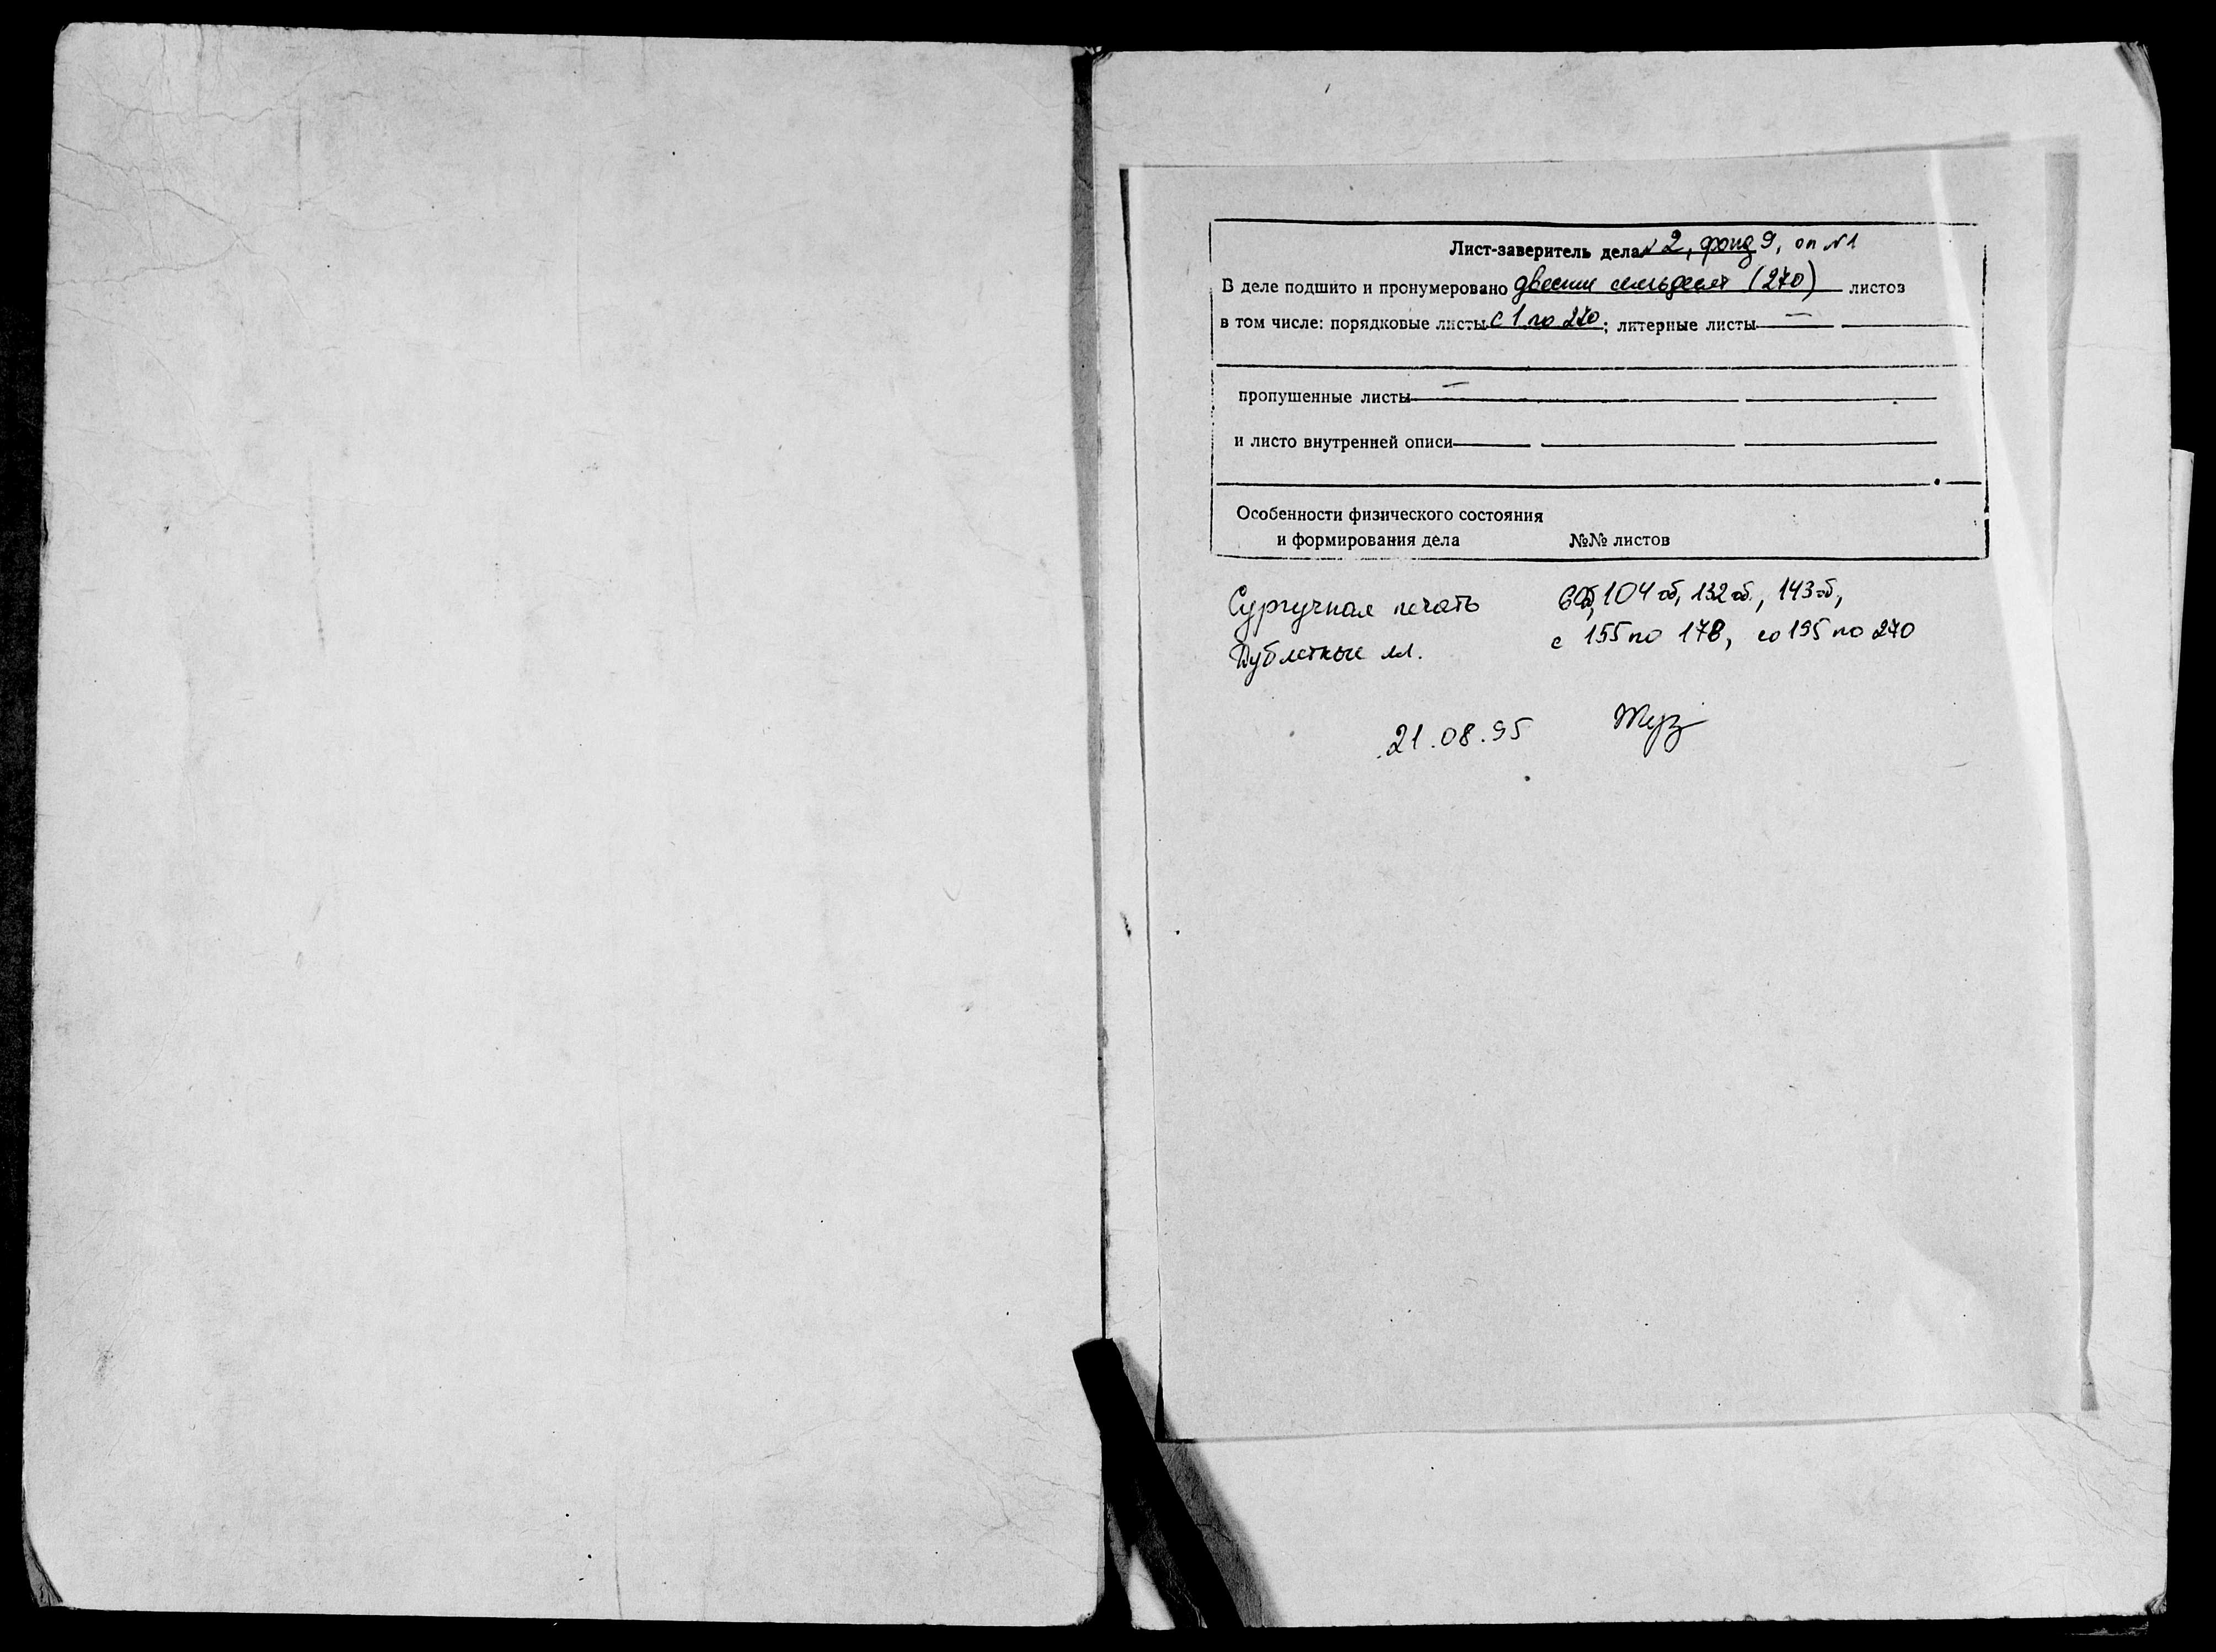 Лист-заверитель дела № 2, фонд 9, оп № 1
В деле подшито и пронумеровано двести семьдесят (270) листов
в том числе: порядковые листы с 1 по 270; литерные листы —
пропушенные листы —
и листо внутренней описи
Особенности физического состояния
и формирования дела №№ листов
Сургучная печать 6об, 104об, 132об., 143об,
Дублетные лл. с 155 по 178, со 195 по 270
21.08.95